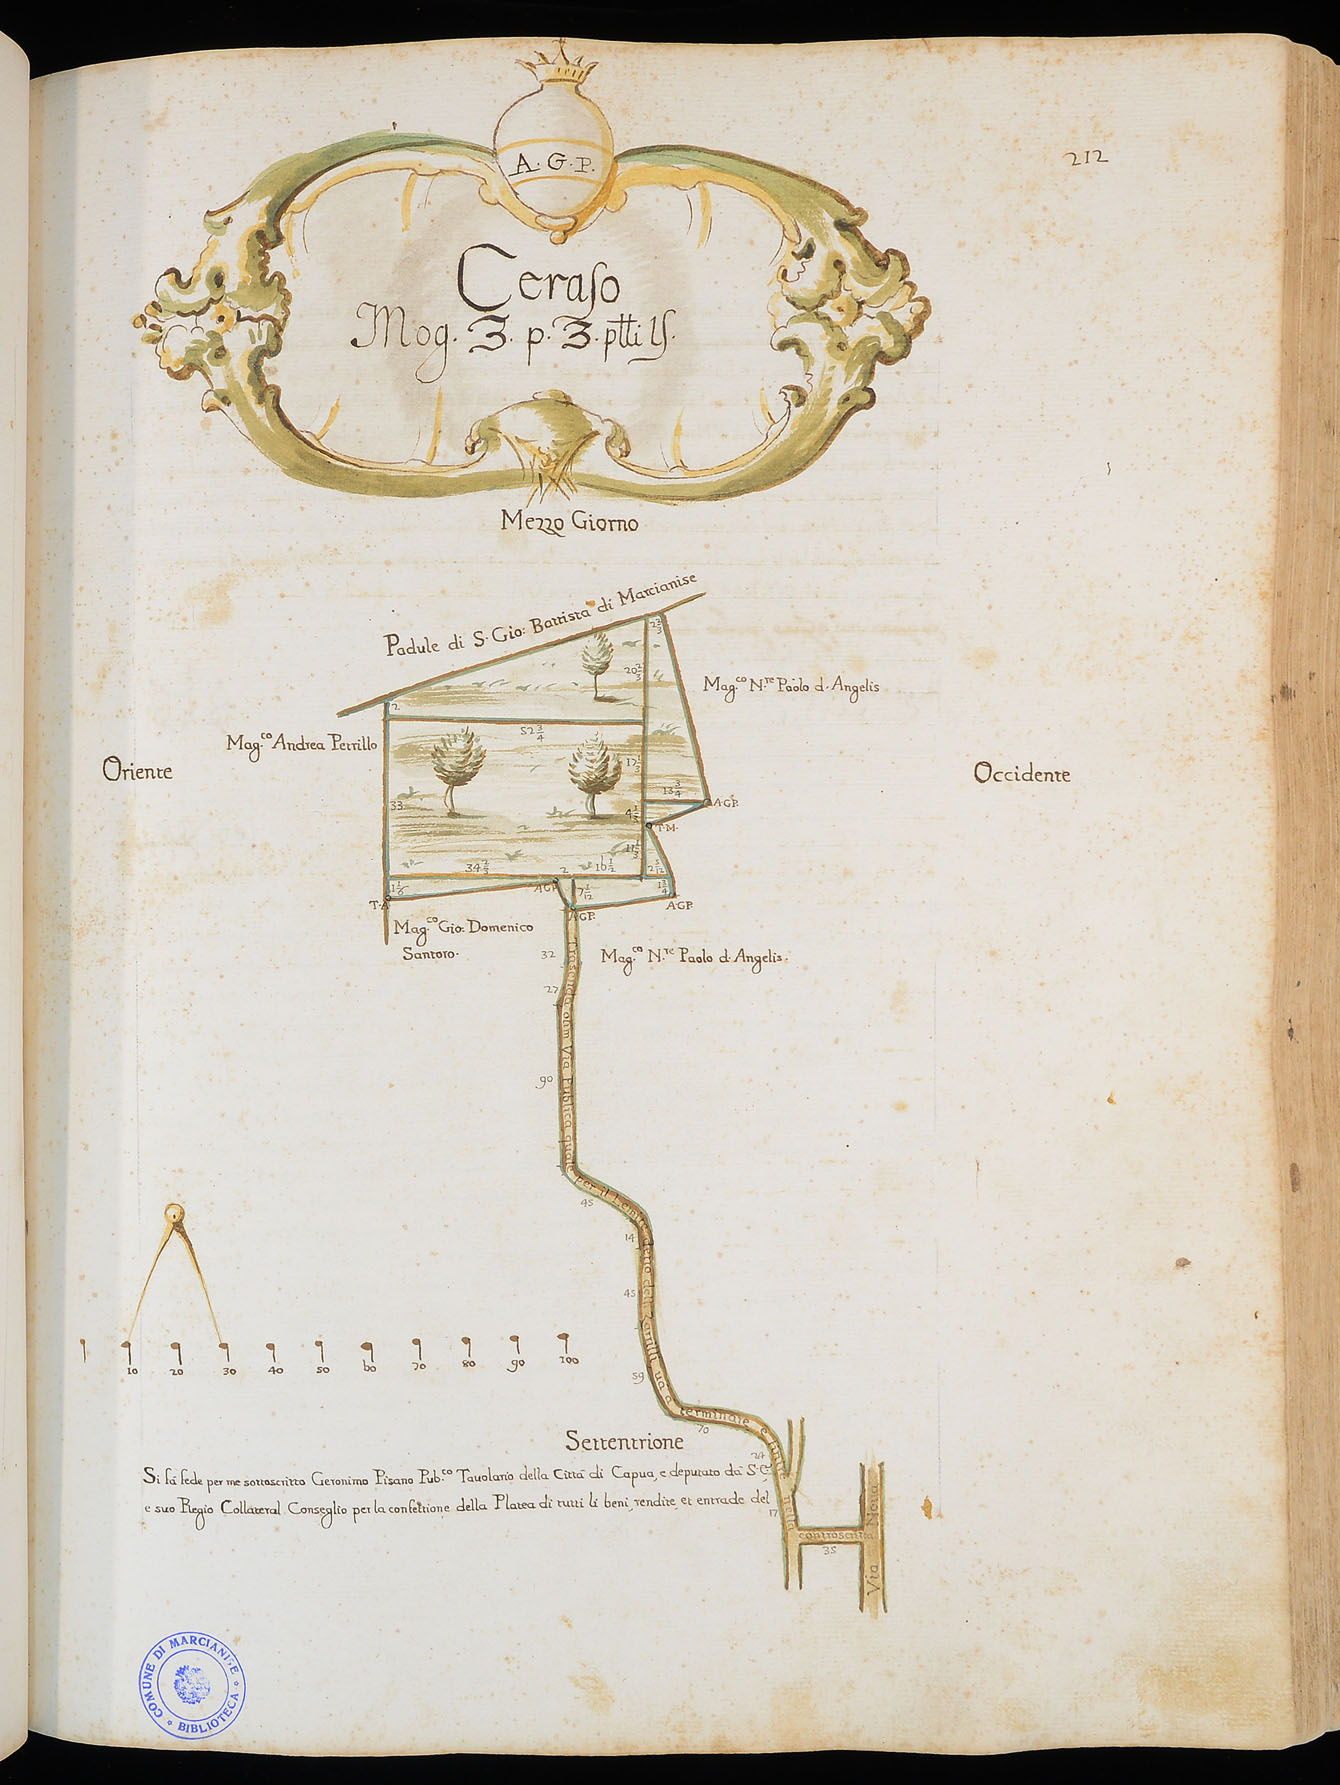 212
A. G. P.
Ceraso
Mog. 3. p. 3. ptti
Mezzo Giorno
Padule di S. Gio: Battista di Marcianise
Mag.co N.re Paolo d. Angelis
Mag.co Andrea Perrillo
Oriente
Occidente
2
2 2/3
20 2/3
52 3/4
17 1/3
33
13 3/4
A.GP.
4 1/3
T.M.
11 1/3
34 2/3
2
16 1/2
2 5/12
1 1/6
A.GP.
7 1/12
1 3/4
T.A.
A.GP.
A.GP.
Mag.co Gio: Domenico
Santoro.
Mag.co N.re Paolo d. Angelis.
32
27
90
45
14
45
59
70
24
17
35
olim Via Publica quale per il Lemite detto dell va à terminare e nella controscritta
Via Noua
10 20 30 40 50 60 70 80 90 100
Settentrione
Si fà fede per me sottoscritto Geronimo Pisano Pub.co Tauolario della Città di Capua, e deputato da S. C.
e suo Regio Collateral Conseglio per la confettione della Platea di tutti li beni, rendite et entrade del
COMUNE DI MARCIANISE * BIBLIOTECA *